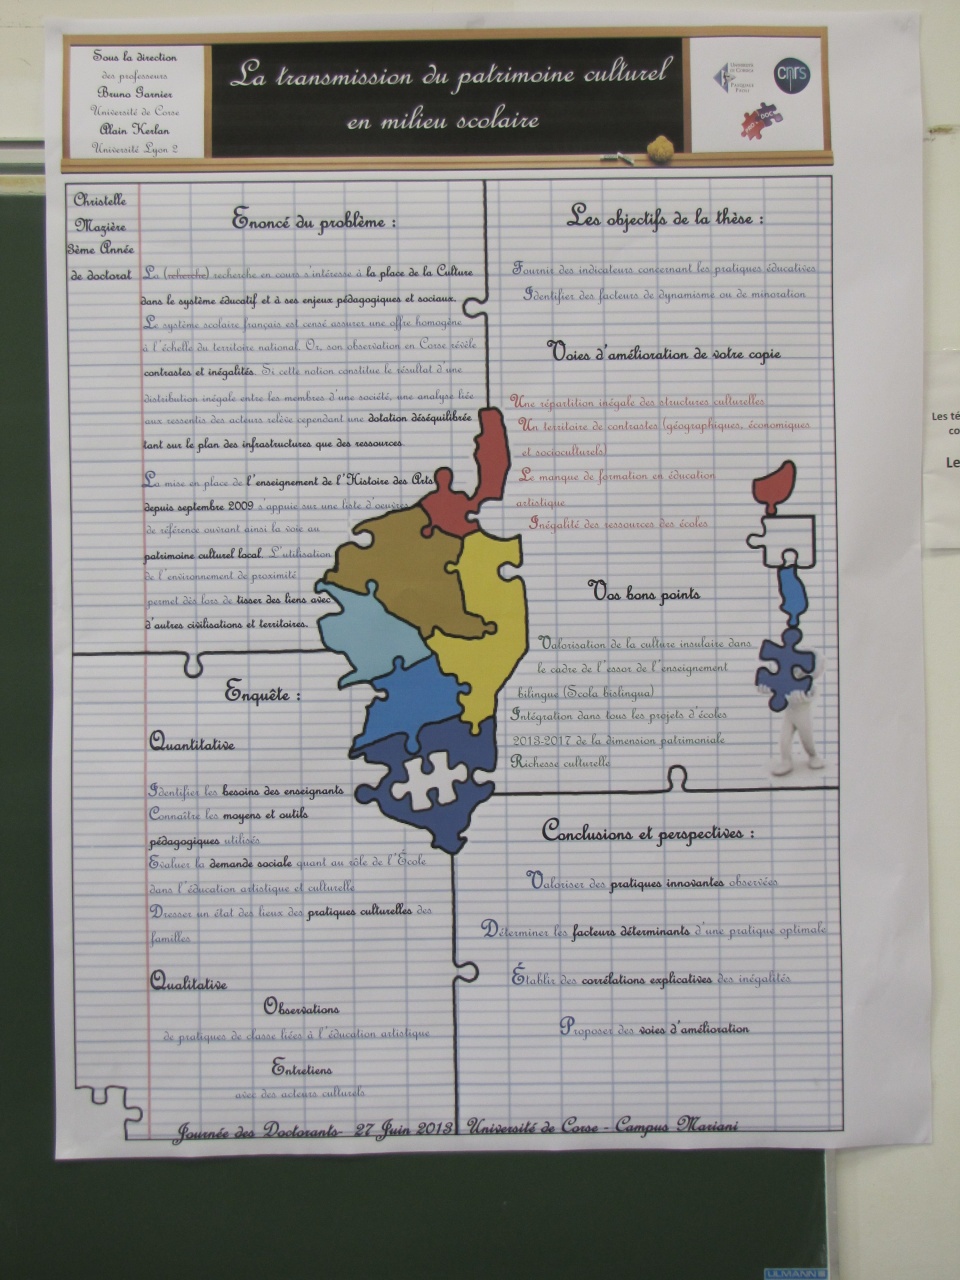 Sous la direction
des professeurs
Bruno Garnier
Université de Corse
Alain Kerlan
Université Lyon 2
La transmission du patrimoine culturel
en milieu scolaire
UNIVERSITÀ
DI CORSICA
PASQUALE
PAOLI
cnrs
Christelle
Mazière
3ème Année
de doctorat
Enoncé du problème :
La (recherche) recherche en cours s'intéresse à la place de la Culture
dans le système éducatif et à ses enjeux pédagogiques et sociaux.
Le système scolaire français est censé assurer une offre homogène
à l'échelle du territoire national. Or, son observation en Corse révèle
contrastes et inégalités. Si cette notion constitue le résultat d'une
distribution inégale entre les membres d'une société, une analyse liée
aux ressentis des acteurs relève cependant une dotation déséquilibrée
tant sur le plan des infrastructures que des ressources.
La mise en place de l'enseignement de l'Histoire des Arts
depuis septembre 2009 s'appuie sur une liste d'oeuvres
de référence ouvrant ainsi la voie au
patrimoine culturel local. L'utilisation
de l'environnement de proximité
permet dès lors de tisser des liens avec
d'autres civilisations et territoires.
Les objectifs de la thèse :
Fournir des indicateurs concernant les pratiques éducatives
Identifier des facteurs de dynamisme ou de minoration
Voies d'amélioration de votre copie
Une répartition inégale des structures culturelles
Un territoire de contrastes (géographiques, économiques
et socioculturels)
Le manque de formation en éducation
artistique
Inégalité des ressources des écoles
Vos bons points
Valorisation de la culture insulaire dans
le cadre de l'essor de l'enseignement
bilingue (Scola bislingua)
Intégration dans tous les projets d'écoles
2013-2017 de la dimension patrimoniale
Richesse culturelle
Enquête :
Quantitative
Identifier les besoins des enseignants
Connaître les moyens et outils
pédagogiques utilisés
Evaluer la demande sociale quant au rôle de l'École
dans l'éducation artistique et culturelle
Dresser un état des lieux des pratiques culturelles des
familles
Qualitative
Observations
de pratiques de classe liées à l'éducation artistique
Entretiens
avec des acteurs culturels
Conclusions et perspectives :
Valoriser des pratiques innovantes observées
Déterminer les facteurs déterminants d'une pratique optimale
Établir des corrélations explicatives des inégalités
Proposer des voies d'amélioration
Journée des Doctorants- 27 Juin 2013 Université de Corse - Campus Mariani
Les té
co
Le
ULMANN